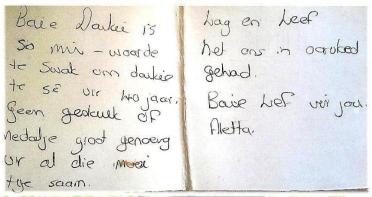 Baie Dankie is
so min - woorde
te swak om dankie
te sê vir 40 jaar.
Geen geskenk of
medalje groot genoeg
vir al die mooi
tye saam.
Lag en Leef
het ons in oorvloed
gehad.
Baie Lief vir jou.
Aletta.